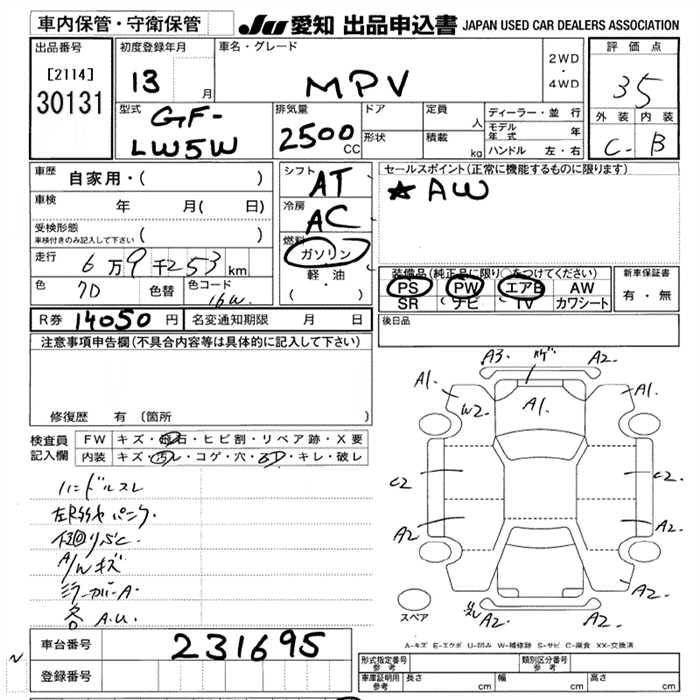 車内保管・守衛保管
JU 愛知 出品申込書 JAPAN USED CAR DEALERS ASSOCIATION
出品番号
[2114]
30131
初度登録年月
13 月
車名・グレード
MPV
2WD
・
4WD
評価点
35
外装 内装
C- B
型式
GF-
LW5W
排気量
2500 CC
ドア
形状
定員 人
積載 kg
ディーラー・並行
モデル年式 年
ハンドル 左・右
車歴 自家用・( )
車検 年 月( 日)
受検形態
車検付きのみ記入して下さい ( )
走行 6万9千253km
色 7D 色替 色コード 16W
シフト AT
冷房 AC
燃料
ガソリン
軽・油
( ・ )
セールスポイント(正常に機能するものに限ります)
★AW
装備品(純正品に限り○をつけてください)
PS PW エアB AW
SR ナビ TV カワシート
新車保証書
有・無
R券 14050 円 名変通知期限 月 日
後日品
注意事項申告欄(不具合内容等は具体的に記入して下さい)
修復歴 有(箇所 )
検査員記入欄
FW キズ・飛石・ヒビ割・リペア跡・X要
内装 キズ・汚レ・コゲ・穴・・キレ・破レ
ハンドルスレ
パンク
A/Wキズ
ミラーカバーA.
各A.U.
A3. A2.
A1. A1.
W2. A1.
C2 C2
A2. A2.
A2 A2.
スペア
A-キズ E-エクボ U-凹み W-補修跡 S-サビ C-腐食 XX-交換済
車台番号 231695
登録番号
形式指定番号 参考
類別区分番号 参考
車庫証明用 参考 長さ cm 幅 cm 高さ cm